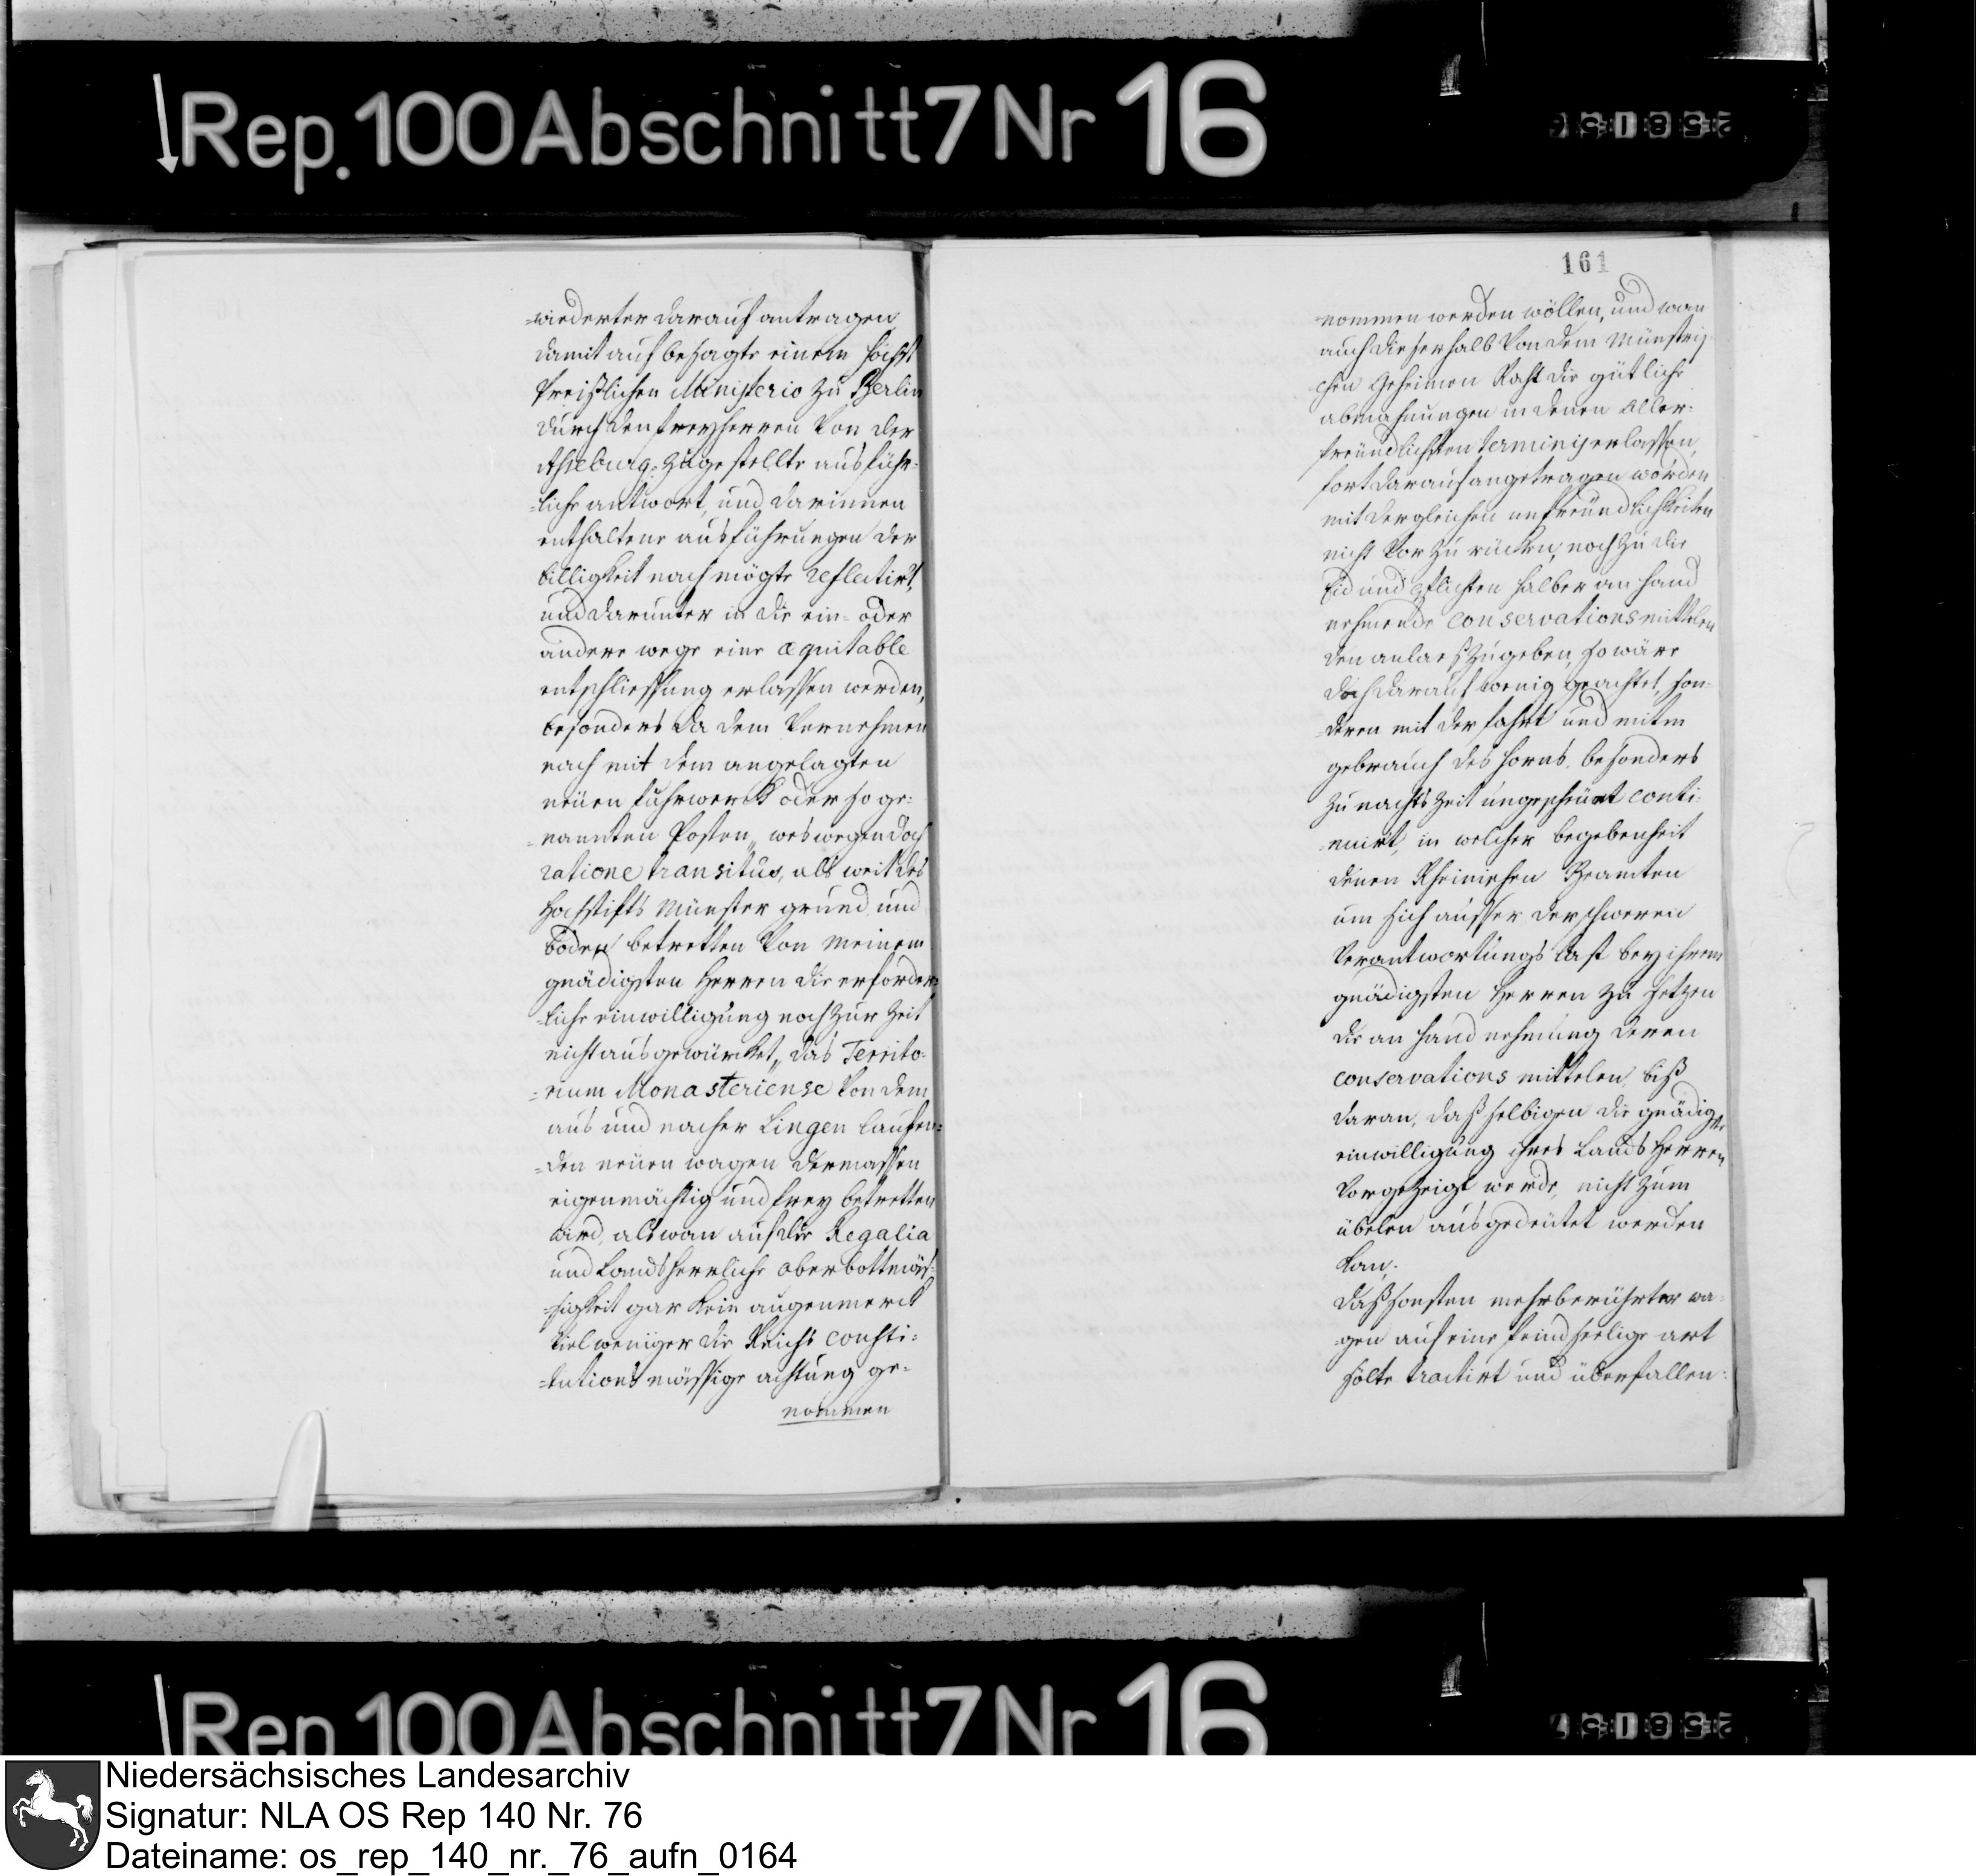 Rep. 100 Abschnitt 7 Nr 16
=wiederter darauf antragen,
damit auf besagte einem höchst
Preißlichen Ministerio zu Berlin
durch den freyherren von der
Asseburg zugestellte ausführ=
=liche antwort, und darinnen
enthaltene ausführungen der
billigkeit nach mögte reflectirt,
und darunter in die ein= oder
andere wege eine æquitable
entschliessung erlassen werden,
besonders da dem Vernehmen
nach mit dem angelagten
neüen fuhrwerck oder so ge=
=nannten Posten, weswegen doch
ratione transitus, als weit des
Hochstifts Münster grund und
boden betretten von meinem
gnädigsten Herren die erforder=
=liche einwilligung noch zur zeit
nicht ausgewürcket, das Territo=
=rium Monasteriense von dem
aus und nacher Lingen laufen=
=den neüen wagen dermassen
eigenmächtig und frey betretten
wird, als wan auf die Regalia
und Landsherrliche oberbottmäs=
=sigkeit gar kein augenmerck
viel weniger die Reichs consti=
=tutions mässige achtung ge=
nommen
161
=nommen werden wöllen, und wan
auch dieserhalb von dem Münstris
chen Geheimen Raht die gütliche
abmahnungen in denen aller=
freündlichsten terminis erlassen,
fort darauf angetragen worden
mit dergleichen unfreündlichkeiten
nicht vor zu rücken, noch zu die
Eid und Pflichten halber an hand
nehmende conservations mittelen
den anlaes zu geben, so wäre
doch darauf wenig geachtet, son=
=deren mit der fahrt und mitm
gebrauch des horns, besonders
zu nachts zeit ungescheüet conti=
=nuirt, in welcher begebenheit
denen Rheinischen Beamten
um sich ausser der schweren
Verantwortungs last bey ihrem
gnädigsten Herren zu setzen
die an hand nehmung deren
conservations mittelen, biß
daran, daß selbigen die gnädigste
einwilligung ihres Lands Herren
vorgezeigt werde, nicht zum
übelen ausgedeütet werden
kan.
daß sonsten mehrberührter wa=
=gen auf eine feindseelige art
solte tractirt und überfallen=
Rep. 100 Abschnitt 7 Nr 16
Niedersächsisches Landesarchiv
Signatur: NLA OS Rep 140 Nr. 76
Dateiname: os_rep_140_nr._76_aufn_0164